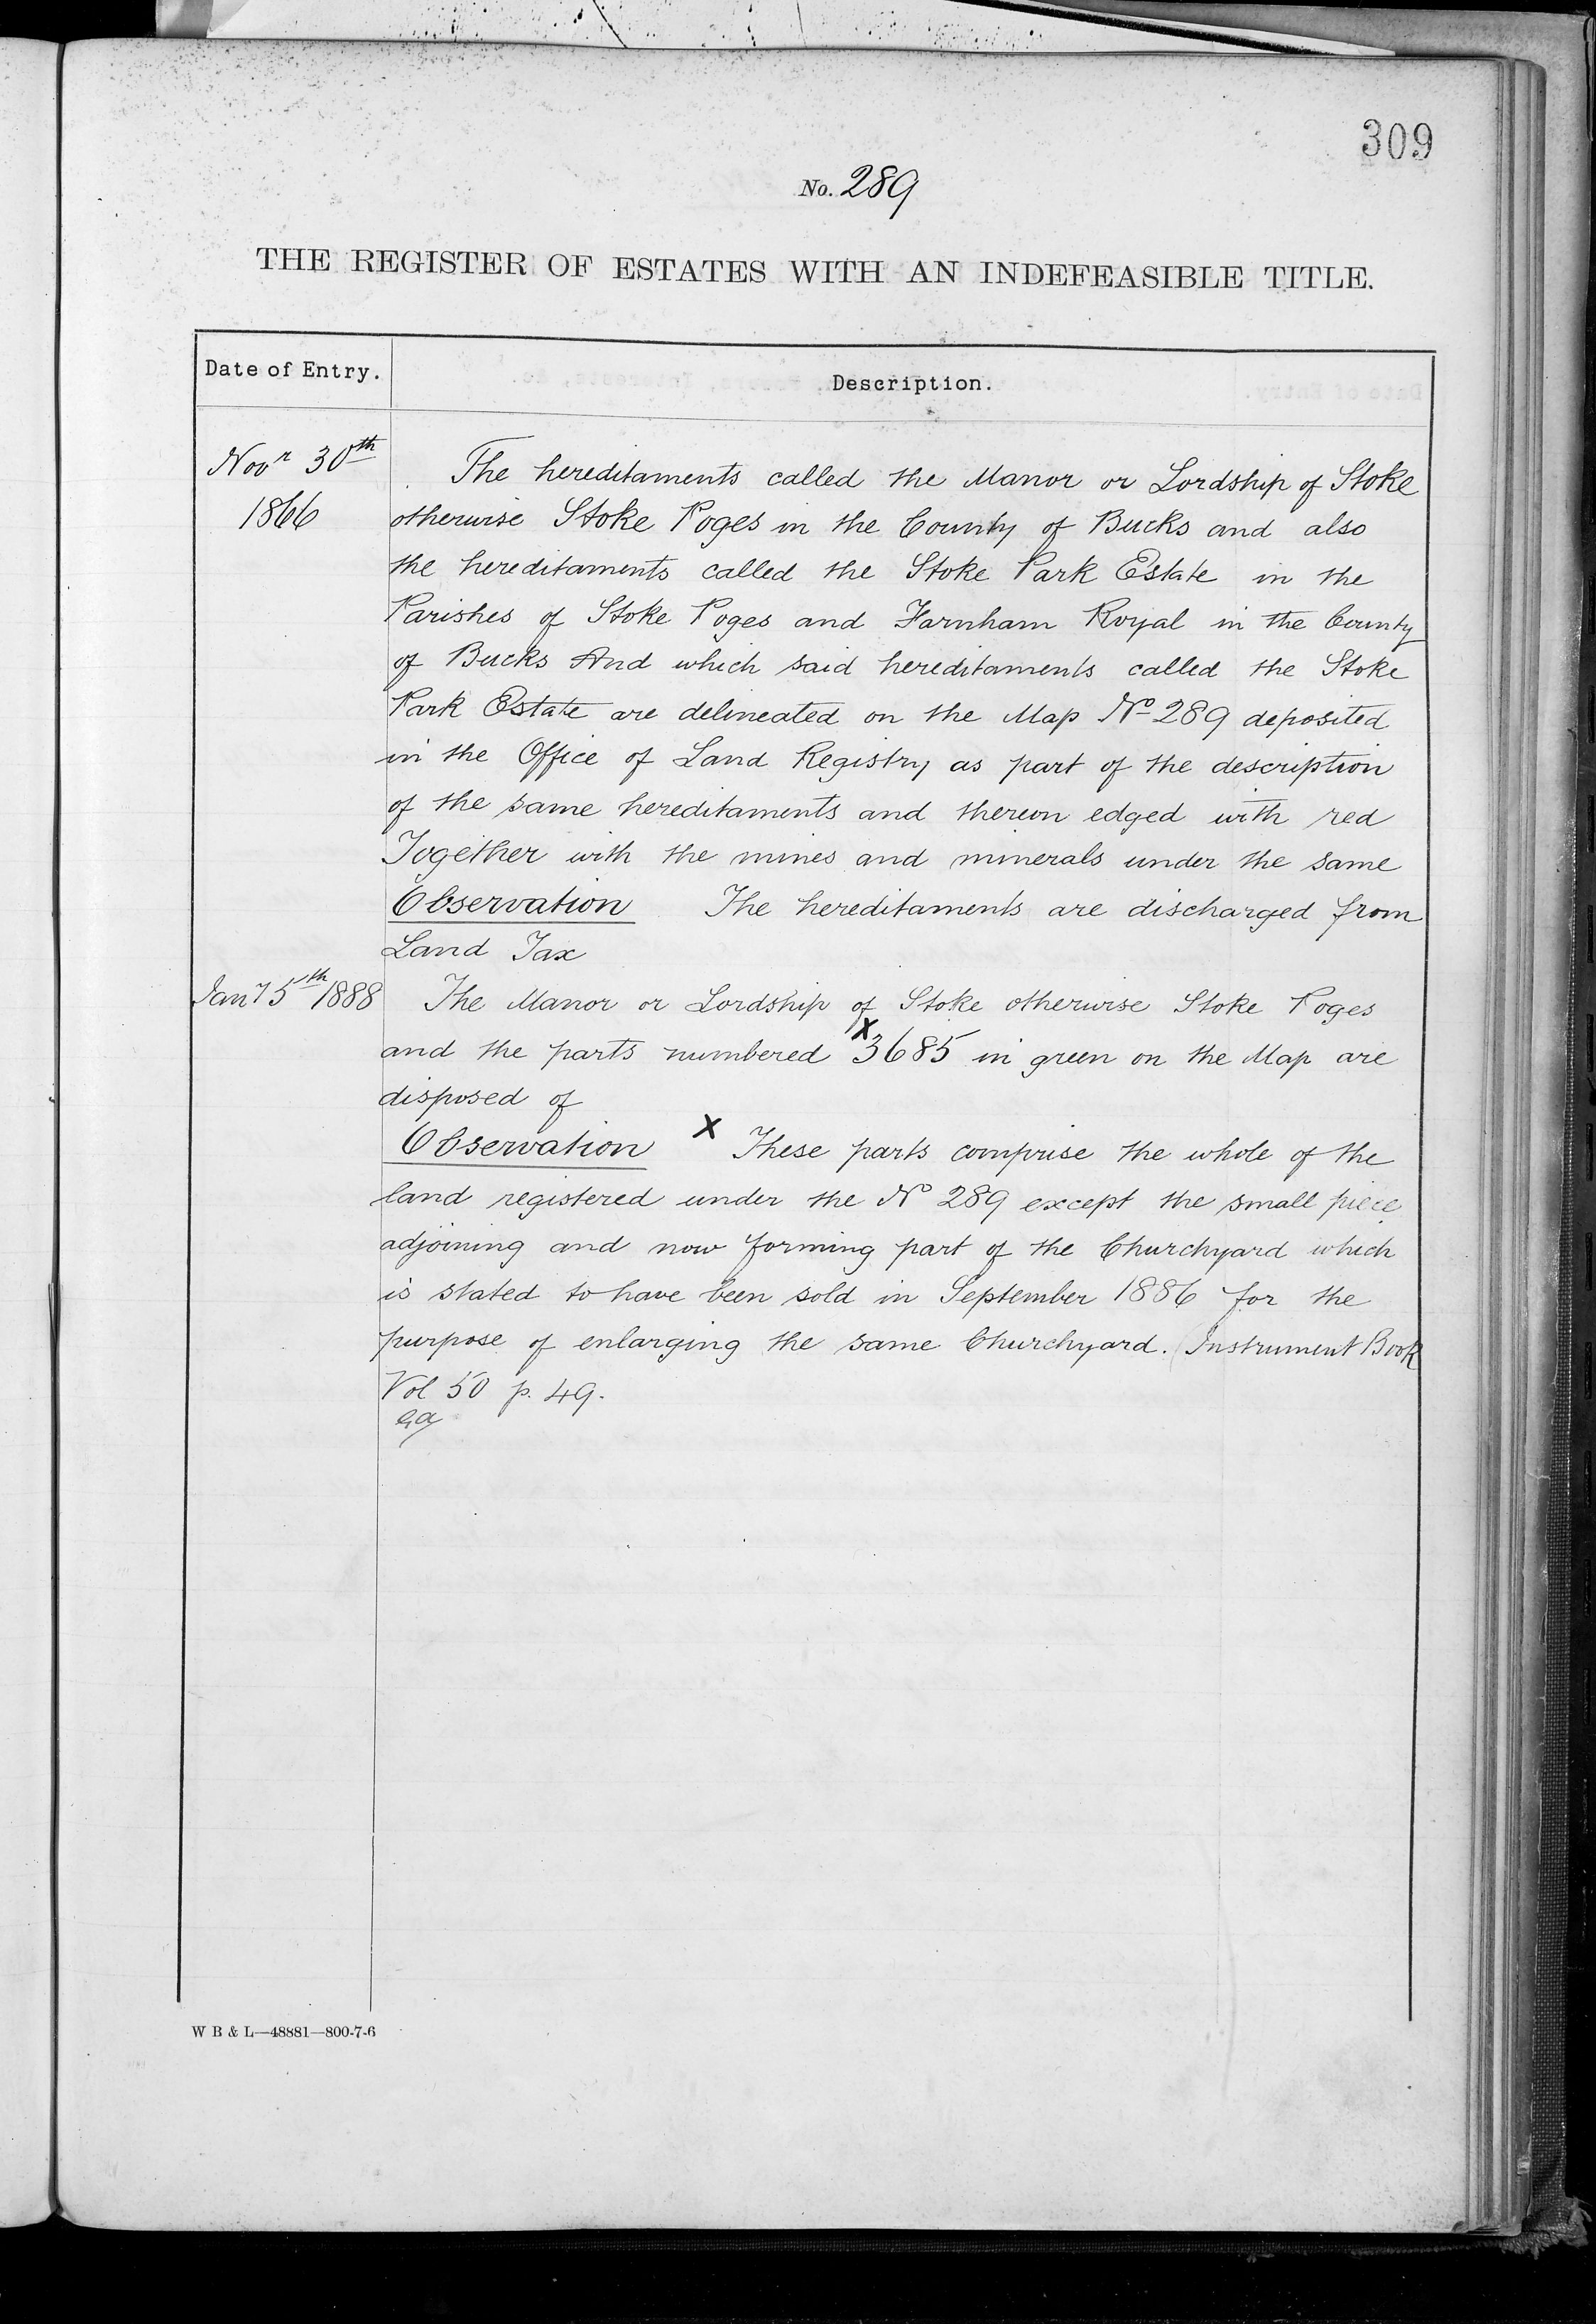 309
No. 289
THE REGISTER OF ESTATES WITH AN INDEFEASIBLE TITLE.
Date of Entry.
Description.
Novr 30th
1866
The hereditaments called the Manor or Lordship of Stoke
otherwise Stoke Poges in the County of Bucks and also
the hereditaments called the Stoke Park Estate in the
Parishes of Stoke Poges and Farnham Royal in the County
of Bucks And which said hereditaments called the Stoke
Park Estate are delineated on the Map No 289 deposited
in the Office of Land Registry as part of the description
of the same hereditaments and thereon edged with red
Together with the mines and minerals under the same
Observation The hereditaments are discharged from
Land Tax
Jany 5th 1888
The Manor or Lordship of Stoke otherwise Stoke Poges
and the parts numbered X 3685 in green on the Map are
disposed of
Observation X These parts comprise the whole of the
land registered under the No 289 except the small piece
adjoining and now forming part of the Churchyard which
is stated to have been sold in September 1886 for the
purpose of enlarging the same Churchyard. (Instrument Book
Vol 50 p. 49.
W B & L—48881—800-7-6